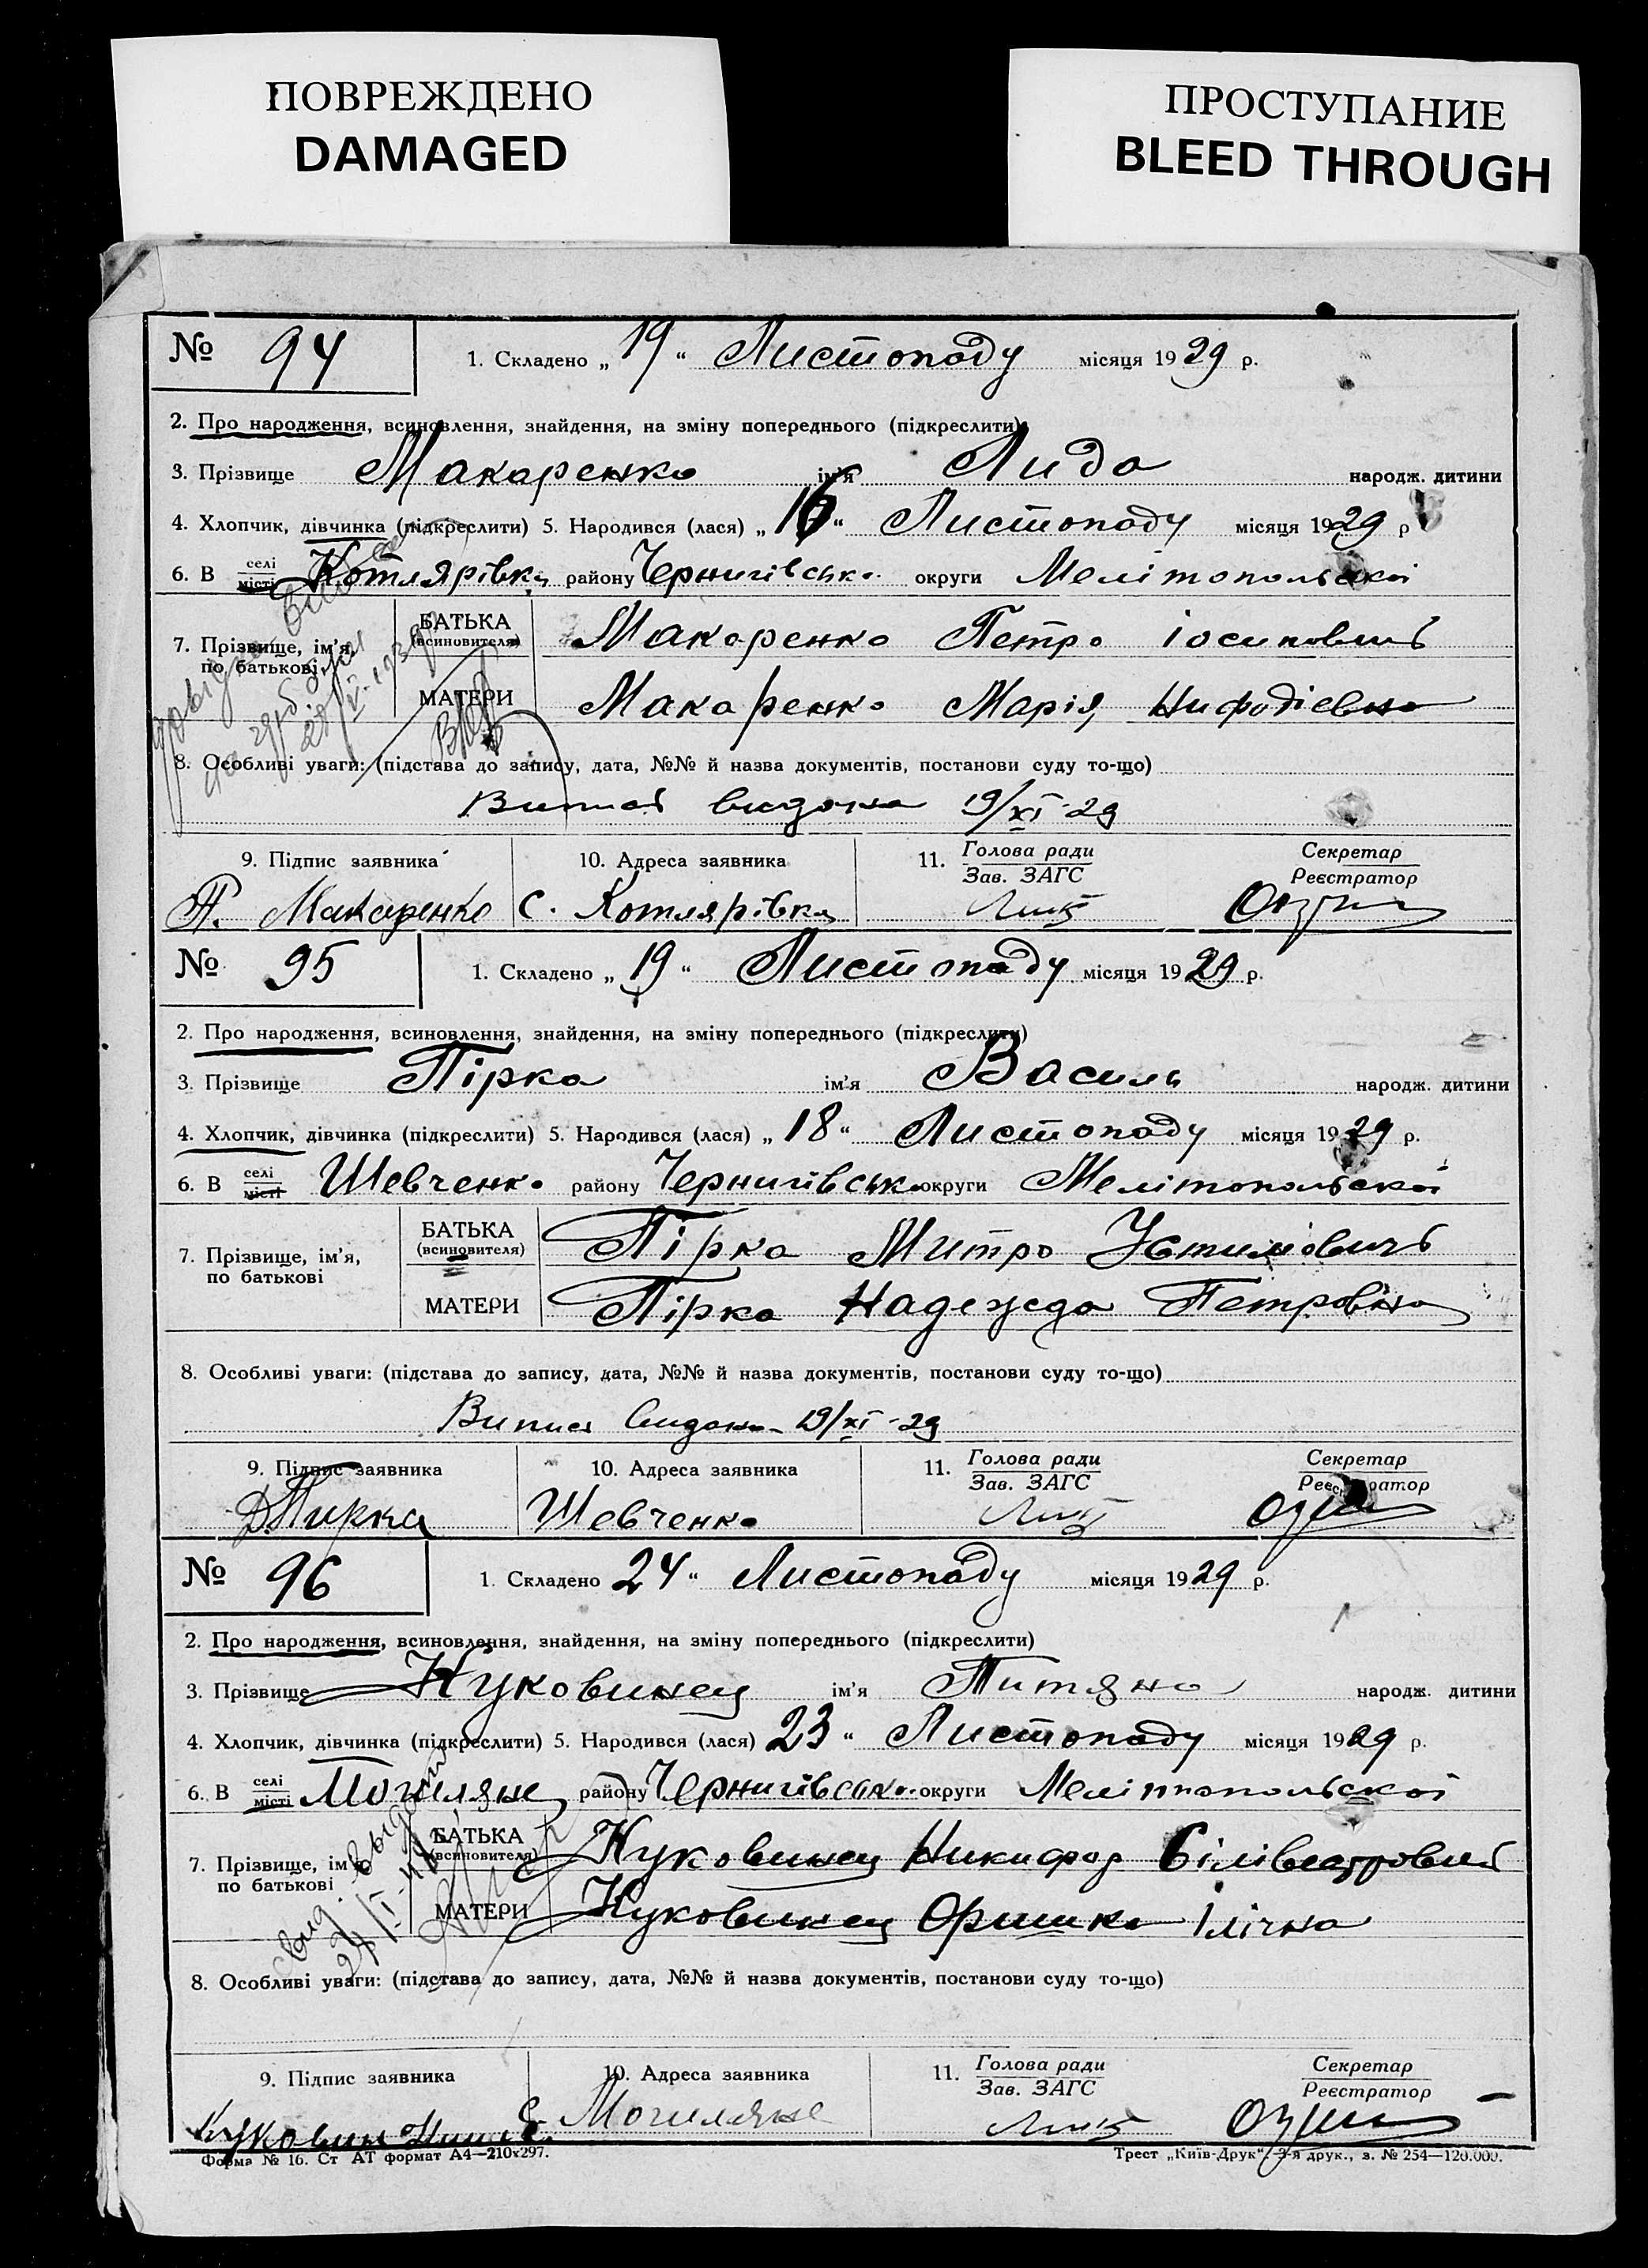 ПОВРЕЖДЕНО
DAMAGED
ПРОСТУПАНИЕ
BLEED THROUGH
№ 94 1. Складено „19“ Листопаду місяця 1929 р.
2. Про народження, всиновлення, знайдення, на зміну попереднього (підкреслити)
3. Прізвище Макаренко ім'я Лида народж. дитини
4. Хлопчик, дівчинка (підкреслити) 5. Народився (лася) „16“ Листопаду місяця 1929 р
6. В селі місті Котлярівка району Чернигівськ. округи Мелітопольскої
7. Прізвище, ім'я, по батькові
БАТЬКА (всиновителя) Макаренко Петро Іосиповичь
МАТЕРИ Макаренко Марія
8. Особливі уваги: (підстава до запису, дата, №№ й назва документів, постанови суду то-що)
Випис видана 19/XI-29
9. Підпис заявника 10. Адреса заявника 11. Голова ради Зав. ЗАГС Секретар Реєстратор
П. Макаренко с. Котлярівка
№ 95 1. Складено „19“ Листопаду місяця 1929 р.
2. Про народження, всиновлення, знайдення, на зміну попереднього (підкреслити)
3. Прізвище Пірка ім'я Василь народж. дитини
4. Хлопчик, дівчинка (підкреслити) 5. Народився (лася) „18“ Листопаду місяця 1929 р.
6. В селі місті Шевченко району Чернигівськ. округи Мелітопольскої
7. Прізвище, ім'я, по батькові
БАТЬКА (всиновителя) Пірка Митро Устимовичь
МАТЕРИ Пірка Надежда Петровна
8. Особливі уваги: (підстава до запису, дата, №№ й назва документів, постанови суду то-що)
Випис видана 19/XI-29
9. Підпис заявника 10. Адреса заявника 11. Голова ради Зав. ЗАГС Секретар Реєстратор
Д. Пирка Шевченко
№ 96 1. Складено 24“ Листопаду місяця 1929 р.
2. Про народження, всиновлення, знайдення, на зміну попереднього (підкреслити)
3. Прізвище Куковинец ім'я народж. дитини
4. Хлопчик, дівчинка (підкреслити) 5. Народився (лася) 23“ Листопаду місяця 1929 р.
6. В селі місті Могиляне району Чернигівськ. округи Мелітопольскої
7. Прізвище, ім'я по батькові
БАТЬКА (всиновителя) Куковинец Никифор
МАТЕРИ Куковинец Оришка Ілічна
8. Особливі уваги: (підстава до запису, дата, №№ й назва документів, постанови суду то-що)
9. Підпис заявника 10. Адреса заявника 11. Голова ради Зав. ЗАГС Секретар Реєстратор
с. Могиляне
Форма № 16. Ст АТ формат А4—210x297. Трест „Київ-Друк“. 3-я друк., з. № 254—120.000.